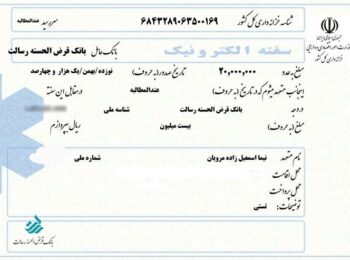 جمهوری اسلامی ایران
وزارت امور اقتصادی و دارایی
خزانه داری کل کشور
شناسه خزانه داری کل کشور ۶۸۴۳۲۸۹۰۶۳۵۰۰۱۶۹ سررسید عندالمطالبه
سفته الکترونیک بانک عامل بانک قرض الحسنه رسالت
مبلغ به عدد ۲۰,۰۰۰,۰۰۰ تاریخ صدور (به حروف) نوزده/بهمن/یک هزار و چهارصد
اینجانب متعهد میشوم که در تاریخ (به حروف) عندالمطالبه در مقابل این سفته
در وجه بانک قرض الحسنه رسالت شناسه ملی
مبلغ (به حروف) بیست میلیون ریال بپردازم
نام متعهد نیما اسمعیل زاده مرویان شماره ملی
محل اقامت
محل پرداخت
توضیحات: تستی
بانک قرض الحسنه رسالت